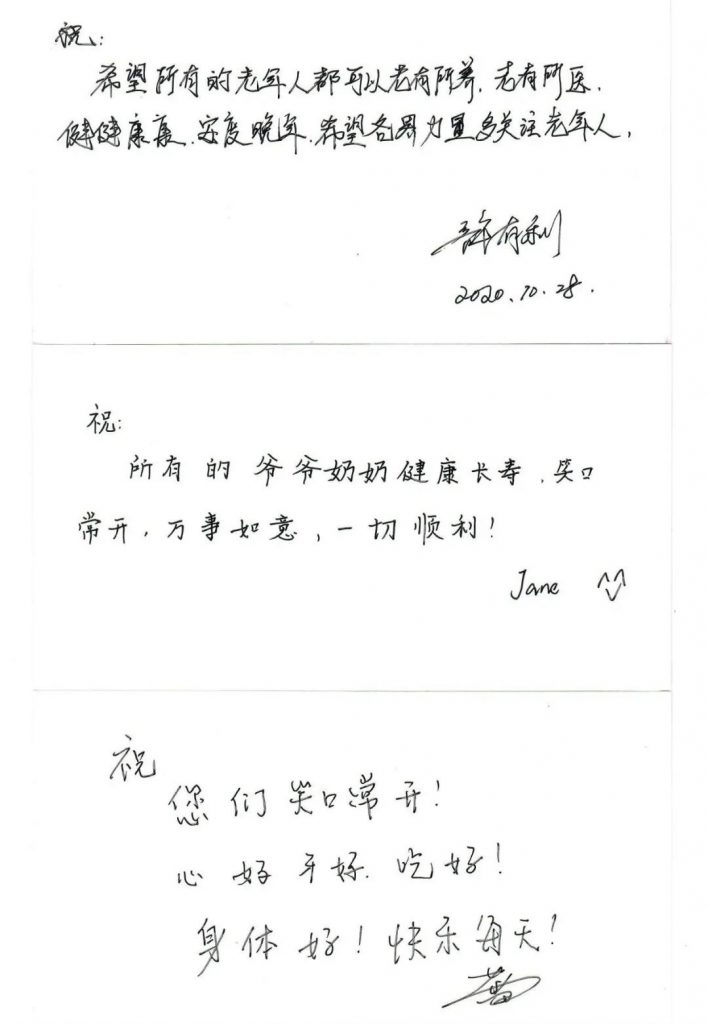 祝:
希望所有的老年人都可以老有所养、老有所医、
健健康康、安度晚年、希望各界力量多关注老年人。
许有利
2020.10.28.
祝:
所有的爷爷奶奶健康长寿、笑口
常开,万事如意,一切顺利!
Jane
祝
您们笑口常开!
心好牙好、吃好!
身体好!快乐每天!